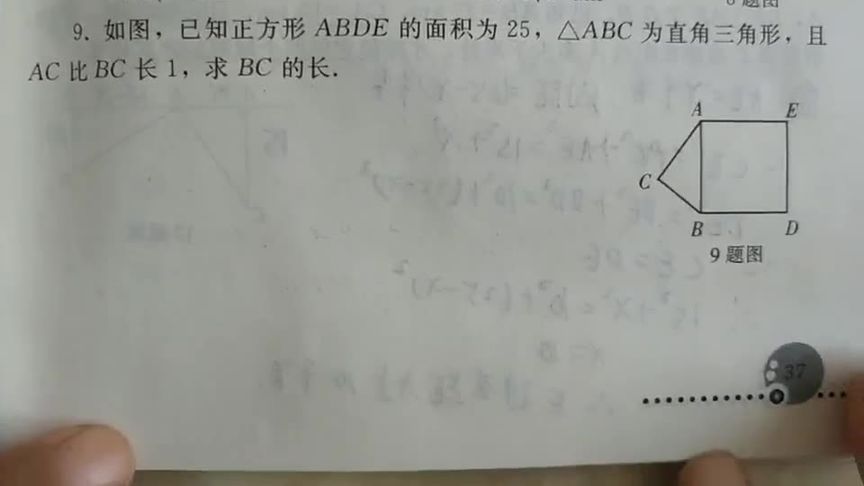 9. 如图，已知正方形 ABDE 的面积为 25，△ABC 为直角三角形，且
AC 比 BC 长 1，求 BC 的长.
A
E
C
B
D
9 题图
37